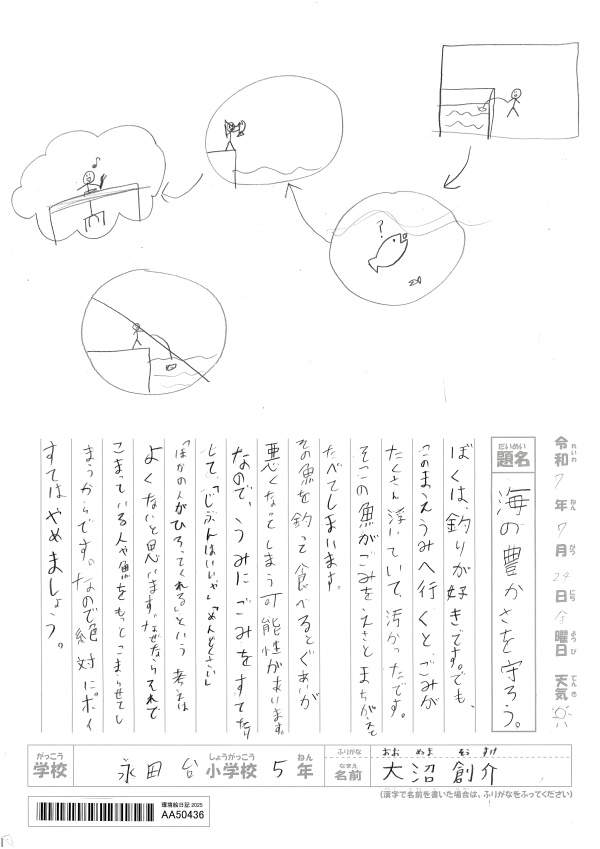 令和7年7月24日金曜日 天気
れいわ ねん がつ にち ようび てんき
だいめい
題名 海の豊かさを守ろう。
ぼくは、釣りが好きです。でも、
このまえうみへ行くと、ごみが
たくさん浮いていて、汚かったです。
そこの魚がごみをえさとまちがえて
たべてしまいます。
その魚を釣って食べるとぐあいが
悪くなってしまう可能性があります。
なので、うみにごみをすてたり
して、「じぶんはいいや」「めんどくさい」
「ほかの人がひろってくれる」という考えは
よくないと思います。なぜならそれで
こまっている人や魚をもっとこまらせてし
まうからです。なので絶対にポイ
すてはやめましょう。
がっこう しょうがっこう ねん
学校 永田台小学校 5年
ふりがな おおぬま そうすけ
なまえ
名前 大沼創介
(漢字で名前を書いた場合は、ふりがなをふってください)
環境絵日記 2025
AA50436
?
♪